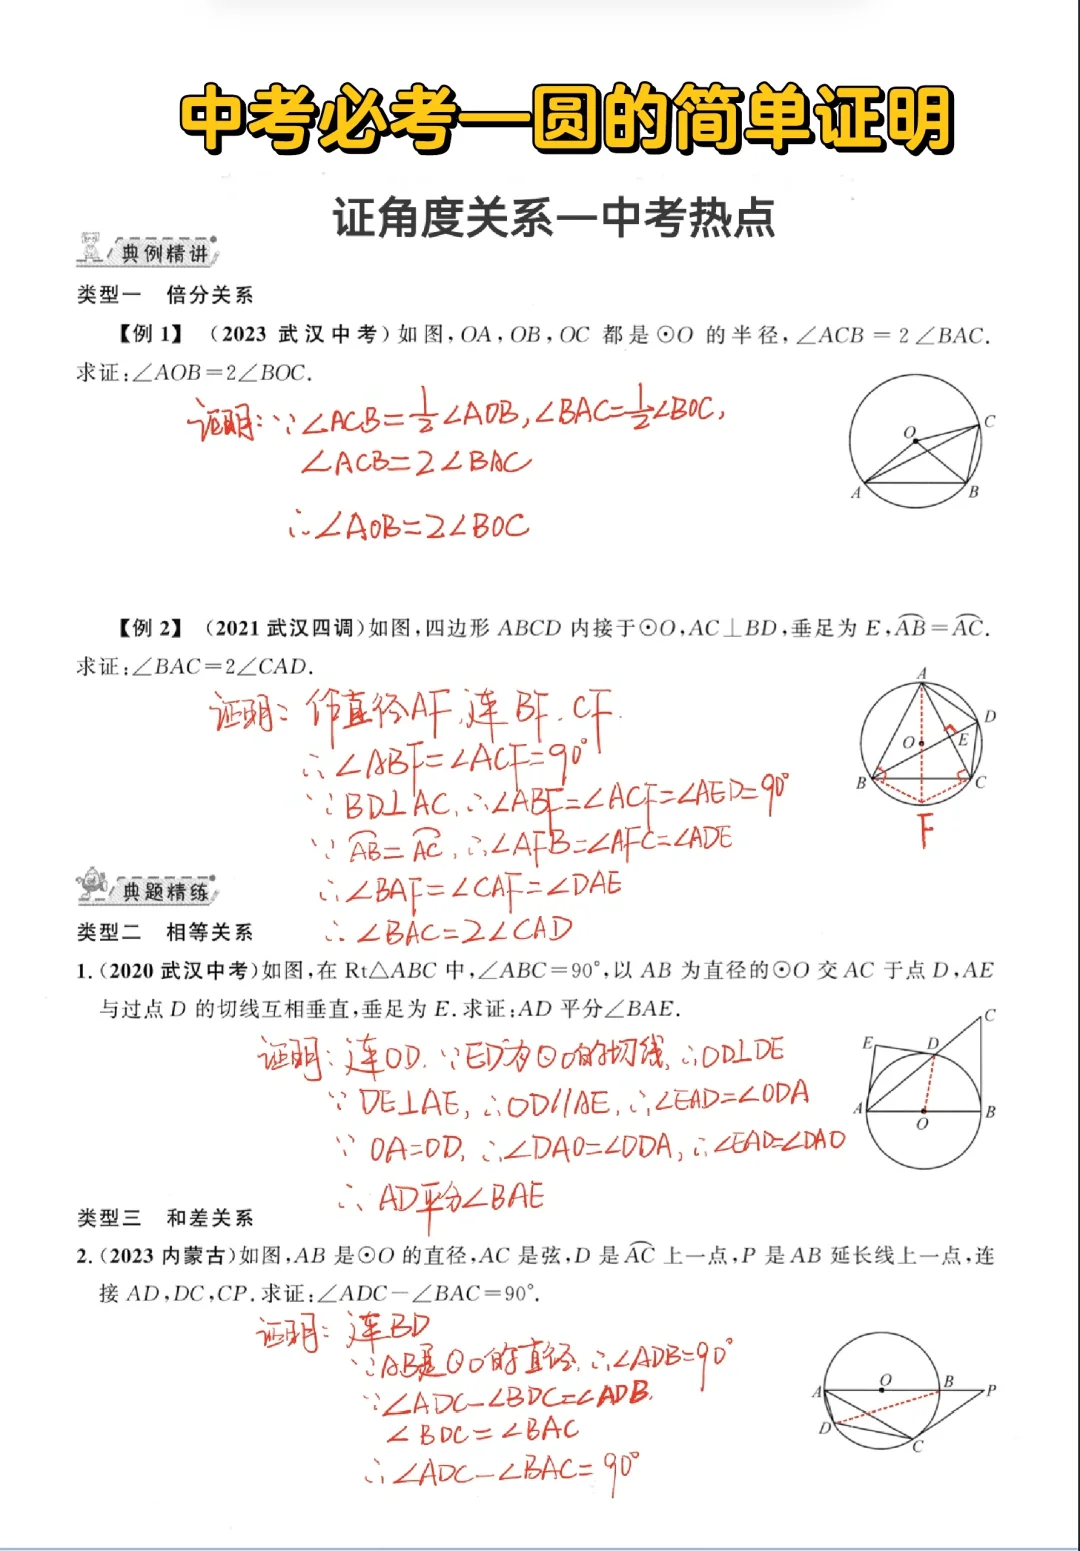 中考必考—圆的简单证明
证角度关系—中考热点
典例精讲
类型一 倍分关系
【例1】（2023 武汉中考）如图,OA,OB,OC 都是⊙O 的半径,∠ACB=2∠BAC.
求证:∠AOB=2∠BOC.
证明:∵∠ACB=½∠AOB,∠BAC=½∠BOC,
∠ACB=2∠BAC
∴∠AOB=2∠BOC
O
C
A
B
【例2】（2021 武汉四调）如图,四边形 ABCD 内接于⊙O,AC⊥BD,垂足为 E,A͡B=A͡C.
求证:∠BAC=2∠CAD.
证明:作直径AF,连BF.CF.
∴∠ABF=∠ACF=90°
∵BD⊥AC,∴∠ABF=∠ACF=∠AED=90°
∵A͡B=A͡C,∴∠AFB=∠AFC=∠ADE
∴∠BAF=∠CAF=∠DAE
∴∠BAC=2∠CAD
A
D
O
E
B
C
F
典题精练
类型二 相等关系
1.（2020 武汉中考）如图,在 Rt△ABC 中,∠ABC=90°,以 AB 为直径的⊙O 交 AC 于点 D,AE
与过点 D 的切线互相垂直,垂足为 E.求证:AD 平分∠BAE.
证明:连OD.∵ED为⊙O的切线,∴OD⊥DE
∵DE⊥AE,∴OD∥AE,∴∠EAD=∠ODA
∵OA=OD,∴∠DAO=∠ODA,∴∠EAD=∠DAO
∴AD平分∠BAE
C
E
D
A
B
O
类型三 和差关系
2.（2023 内蒙古）如图,AB 是⊙O 的直径,AC 是弦,D 是A͡C上一点,P 是 AB 延长线上一点,连
接 AD,DC,CP.求证:∠ADC-∠BAC=90°.
证明:连BD
∵AB是⊙O的直径,∴∠ADB=90°
∵∠ADC-∠BDC=∠ADB,
∠BDC=∠BAC
∴∠ADC-∠BAC=90°
A
O
B
P
D
C